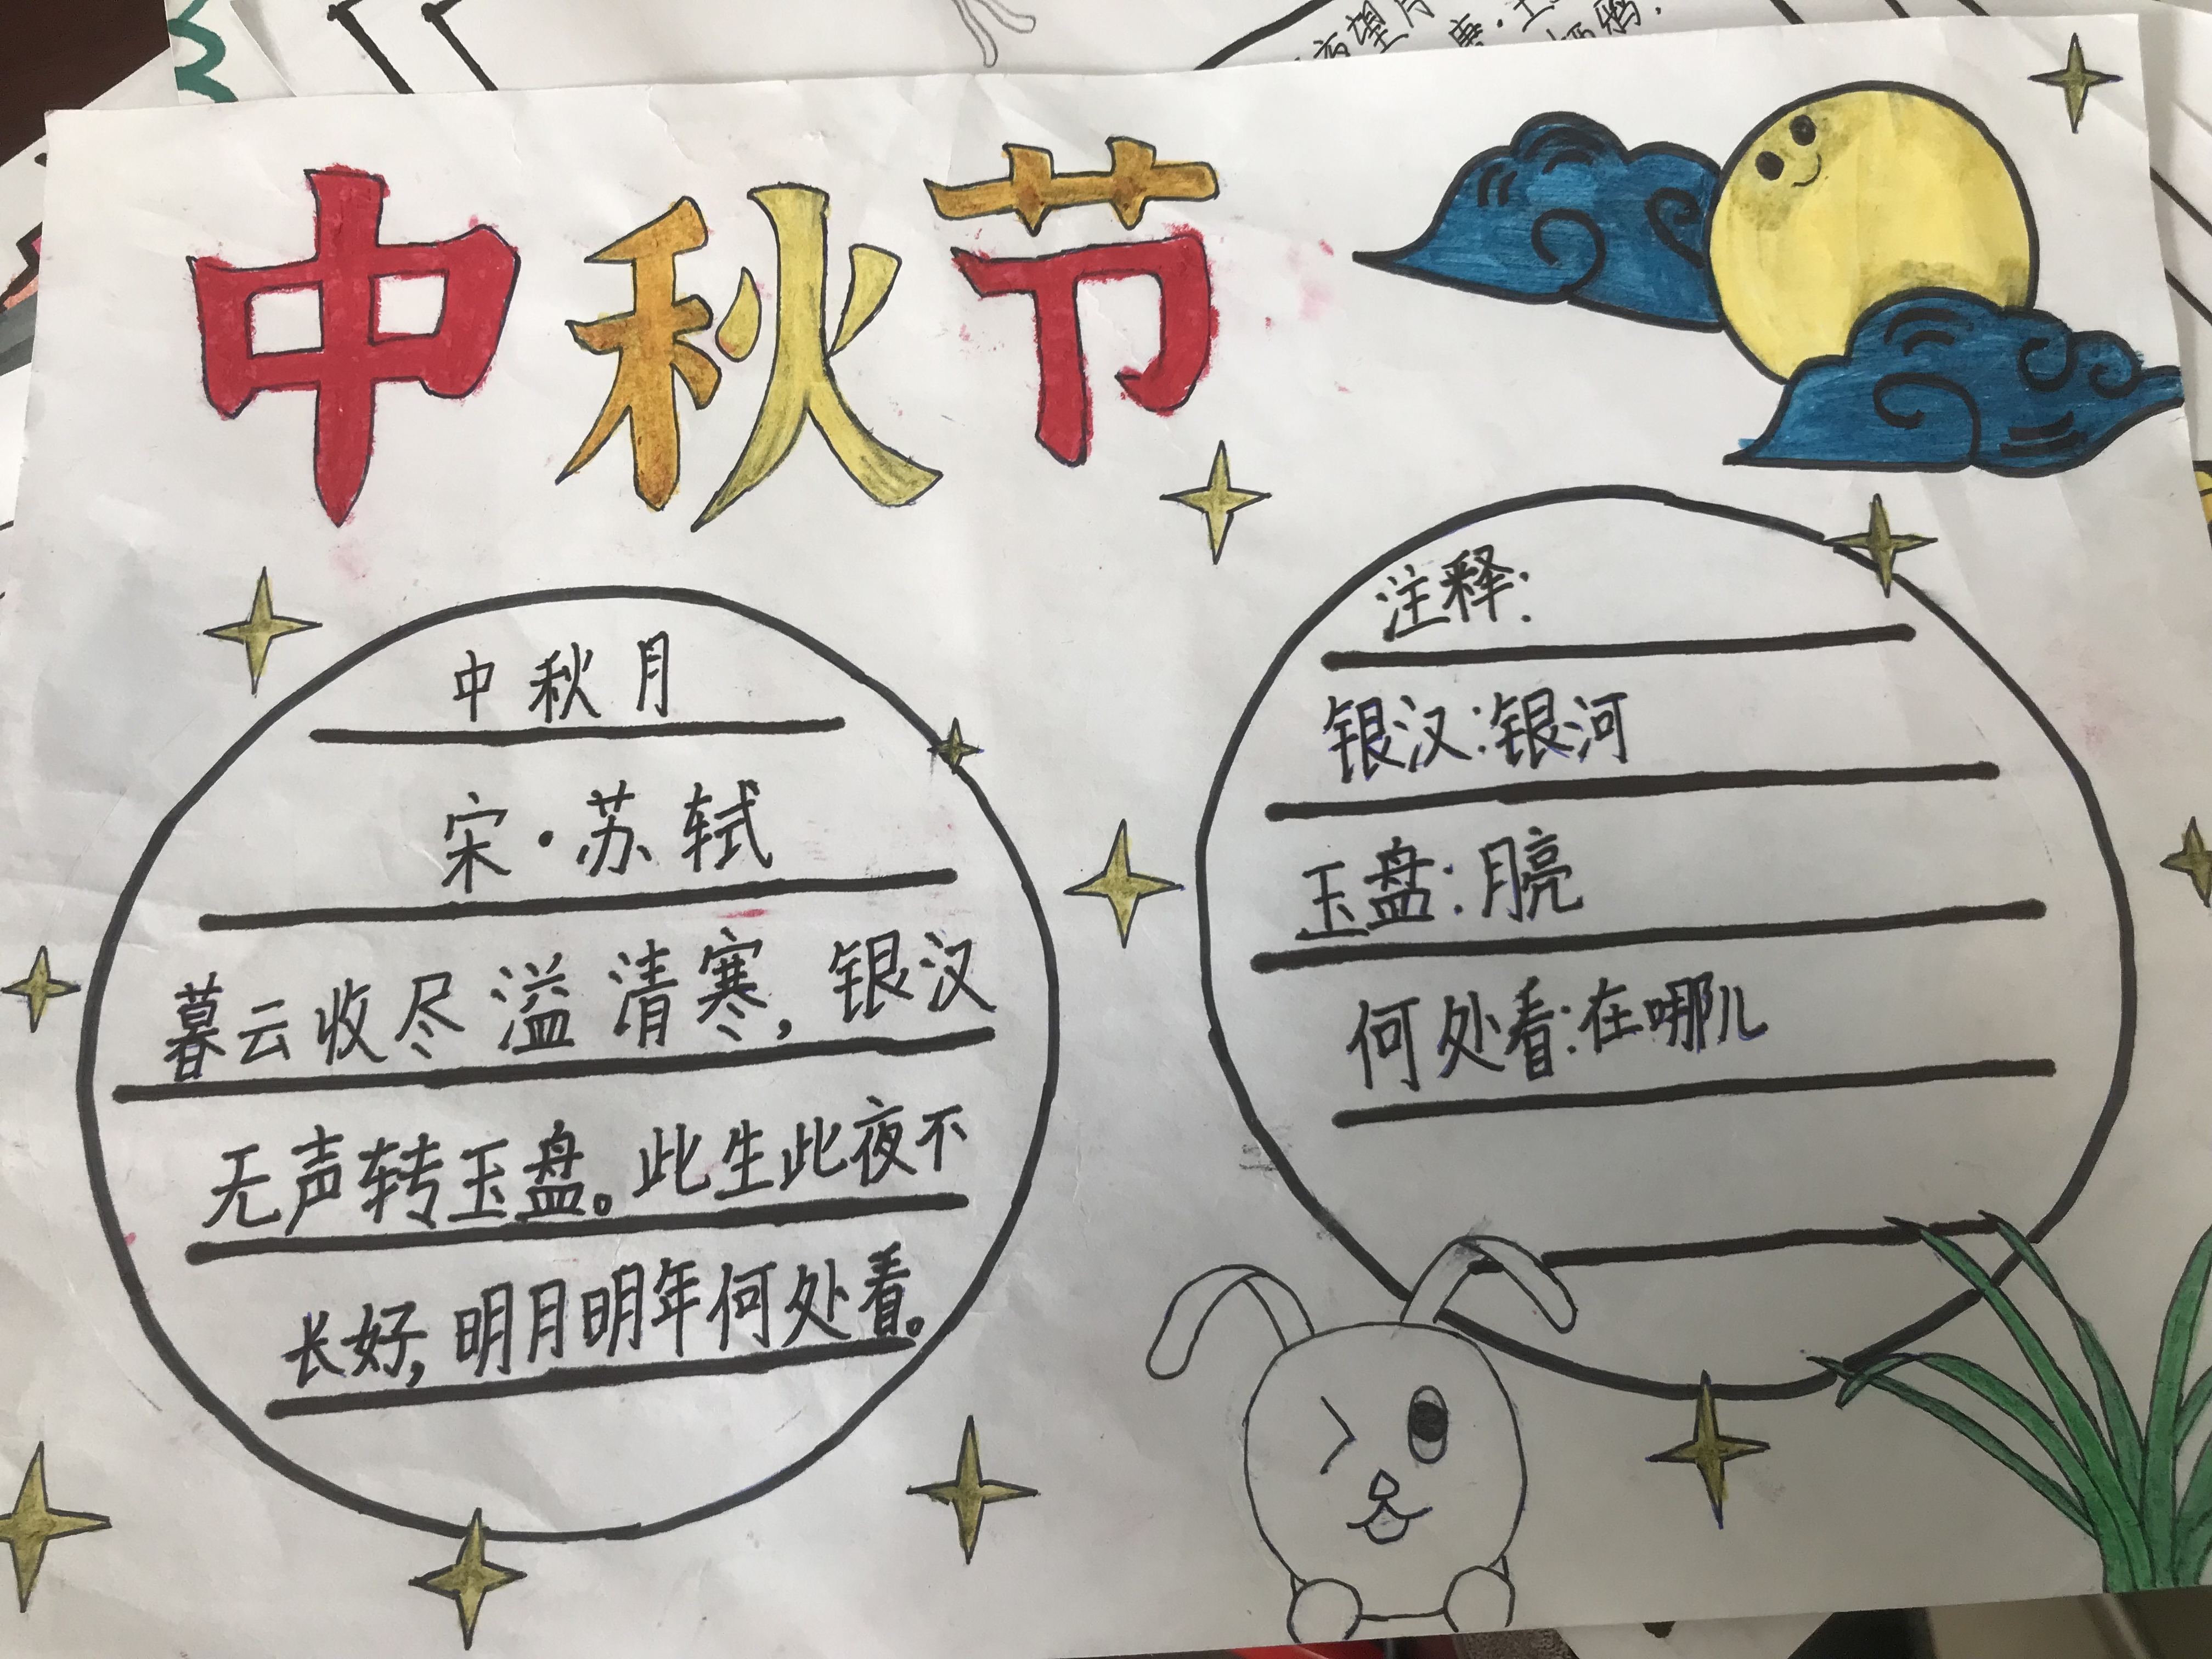 中秋节
中秋月
宋·苏轼
暮云收尽溢清寒,银汉
无声转玉盘。此生此夜不
长好,明月明年何处看。
注释:
银汉:银河
玉盘:月亮
何处看:在哪儿